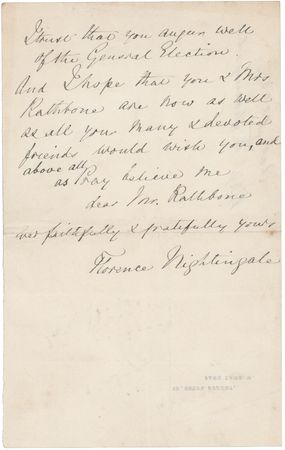 I trust that you augur well
of the General Election.
And I hope that you & Mrs.
Rathbone are now as well
as all you many & devoted
friends would wish you, and
above all
as Pray believe me
dear Mr. Rathbone
ever faithfully & gratefully yours
Florence Nightingale